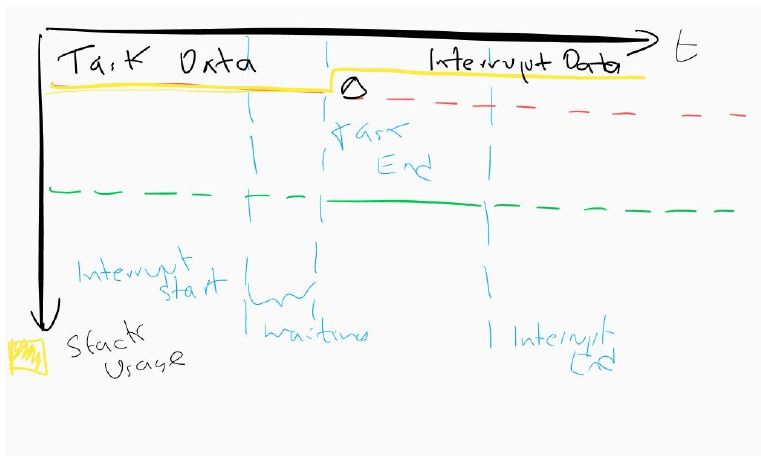 Task Data
Interrupt Data
t
Task
End
Interrupt
start
waiting
Interrupt
End
Stack
Usage